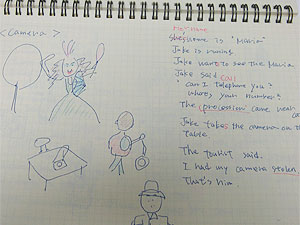 <Camera>
Her name
She name is "Maria"
Jake is runing
Jake want to see the Maria
Jake said call
"Can I telephone you?
What's your number?"
The procession came near
Jake takes the camera on the
table
The tourist said.
I had my camera stolen
That's him